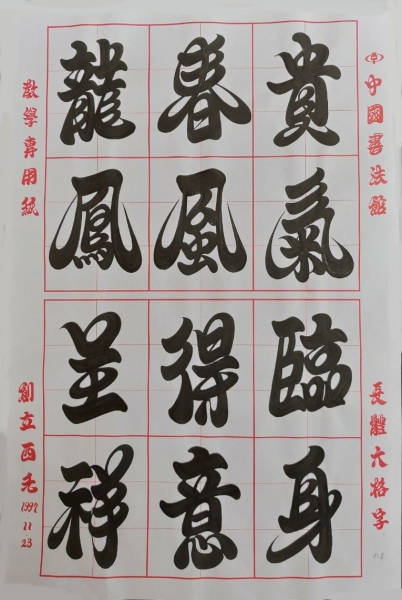 中國書法館
長體六格字
貴氣臨身
春風得意
龍鳳呈祥
教學專用紙
創立西元
1997
11
23